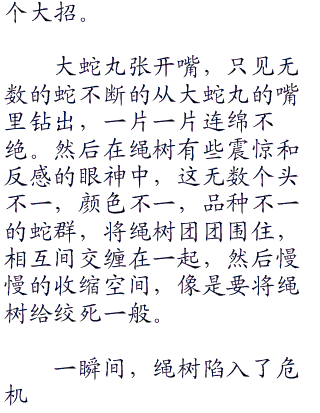 个大招。
大蛇丸张开嘴，只见无
数的蛇不断的从大蛇丸的嘴
里钻出，一片一片连绵不
绝。然后在绳树有些震惊和
反感的眼神中，这无数个头
不一，颜色不一，品种不一
的蛇群，将绳树团团围住，
相互间交缠在一起，然后慢
慢的收缩空间，像是要将绳
树给绞死一般。
一瞬间，绳树陷入了危
机